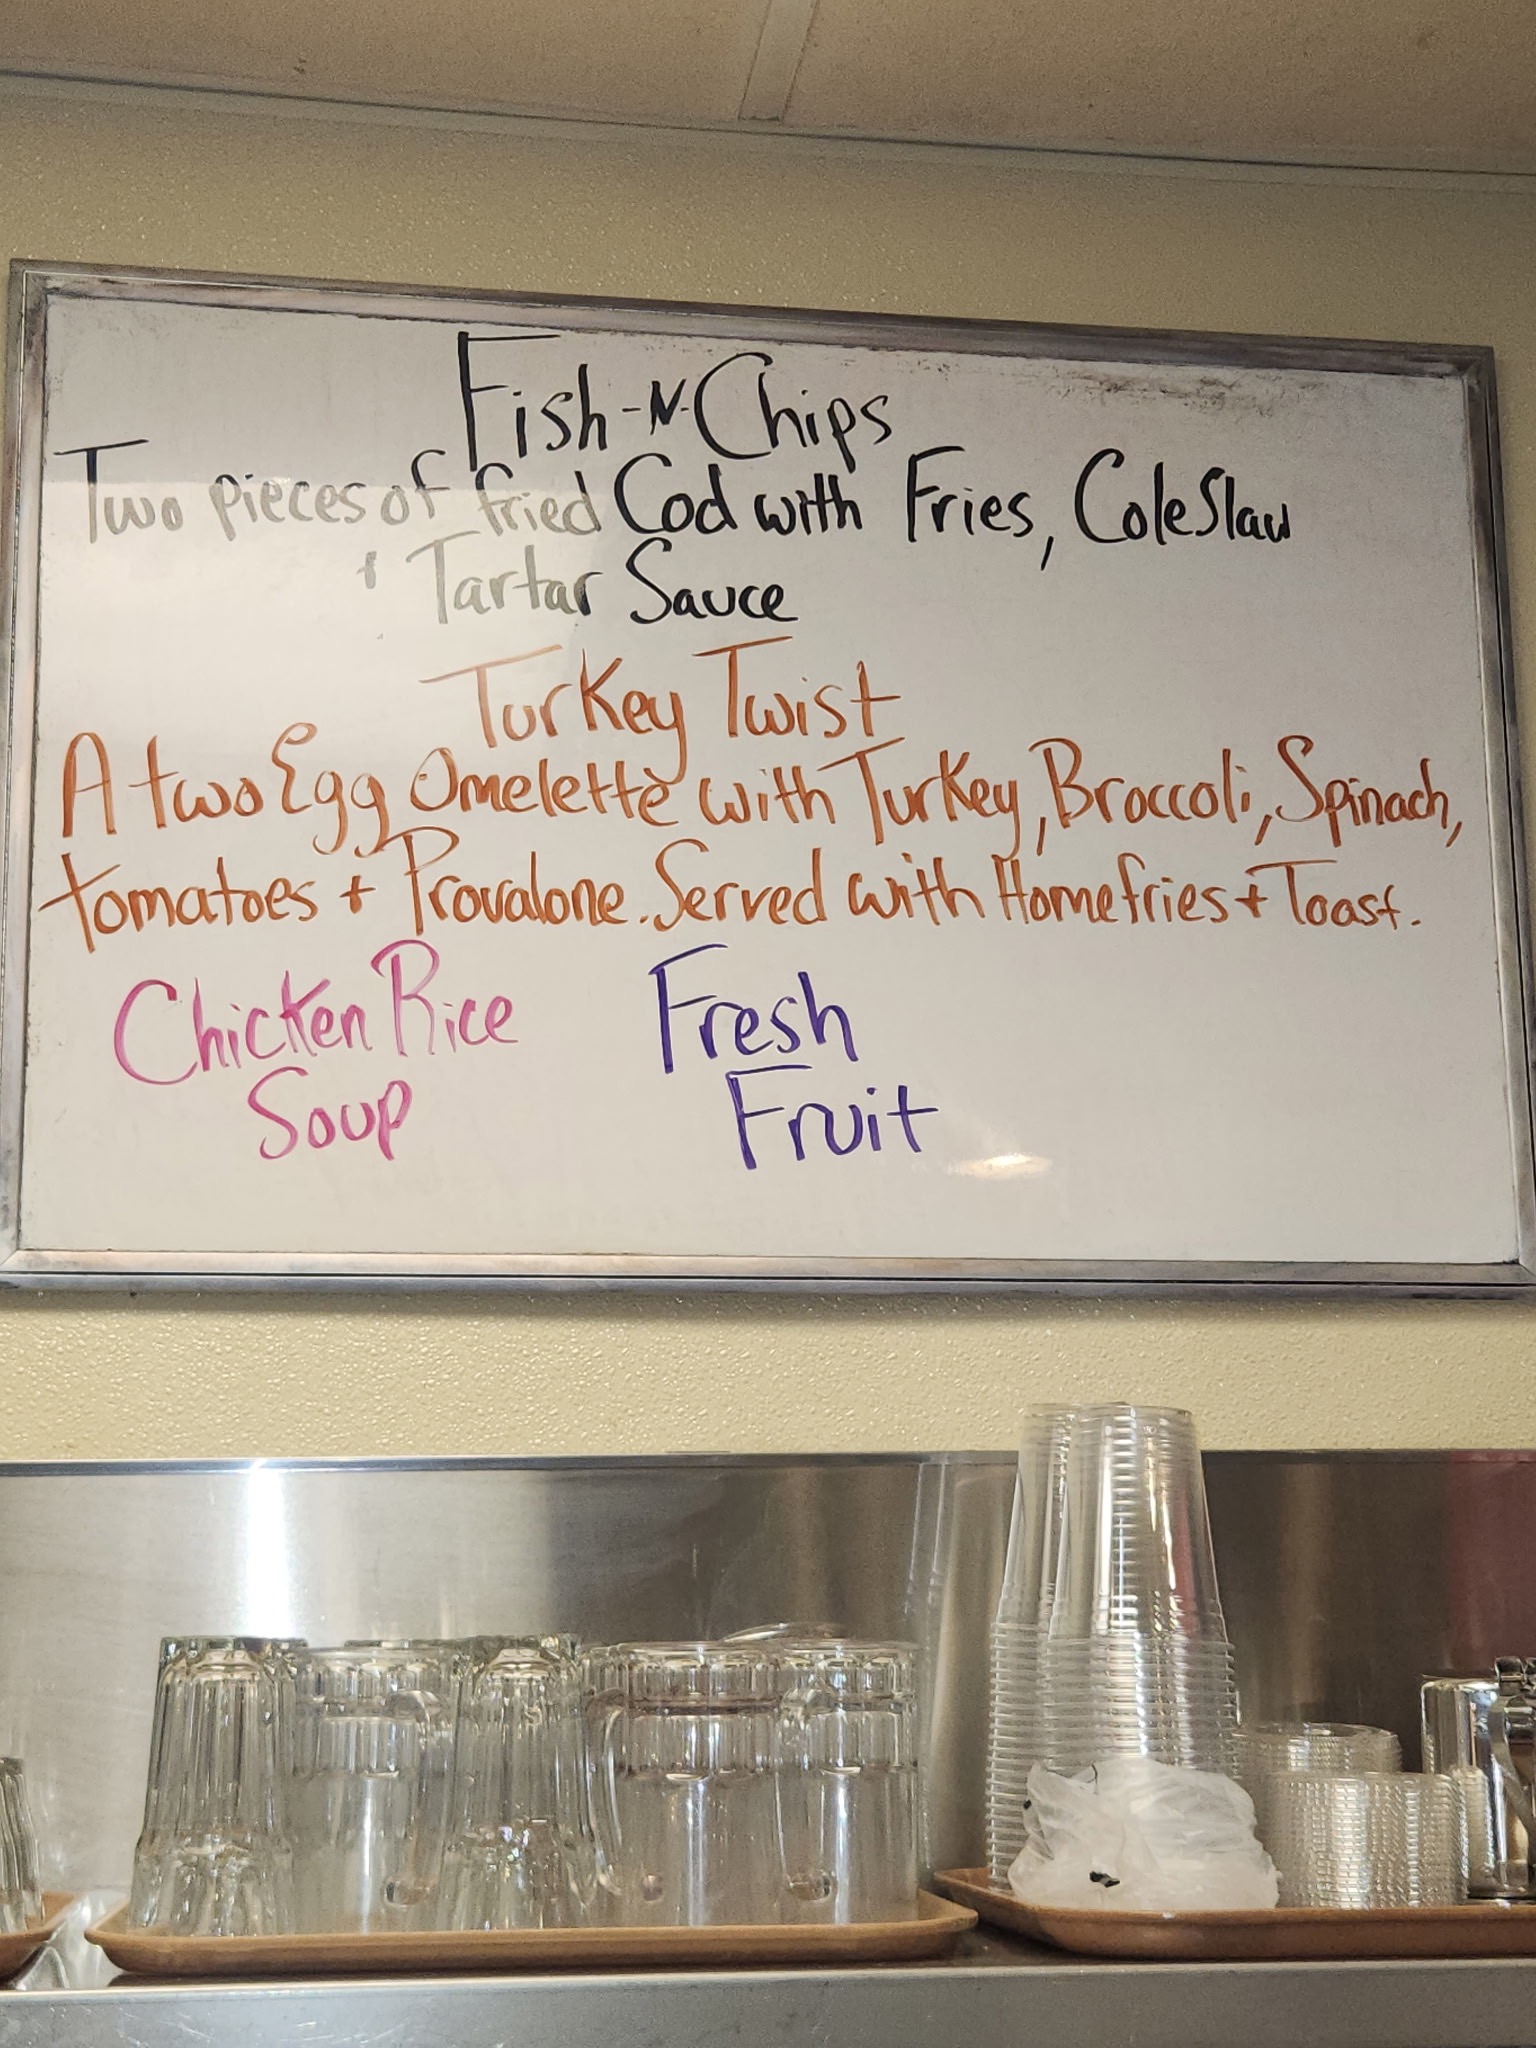 Fish-N-Chips
Two pieces of fried Cod with Fries, ColeSlaw
+ Tartar Sauce
Turkey Twist
A two Egg Omelette with Turkey, Broccoli, Spinach,
tomatoes + Provalone. Served with Homefries + Toast.
Chicken Rice
Soup
Fresh
Fruit